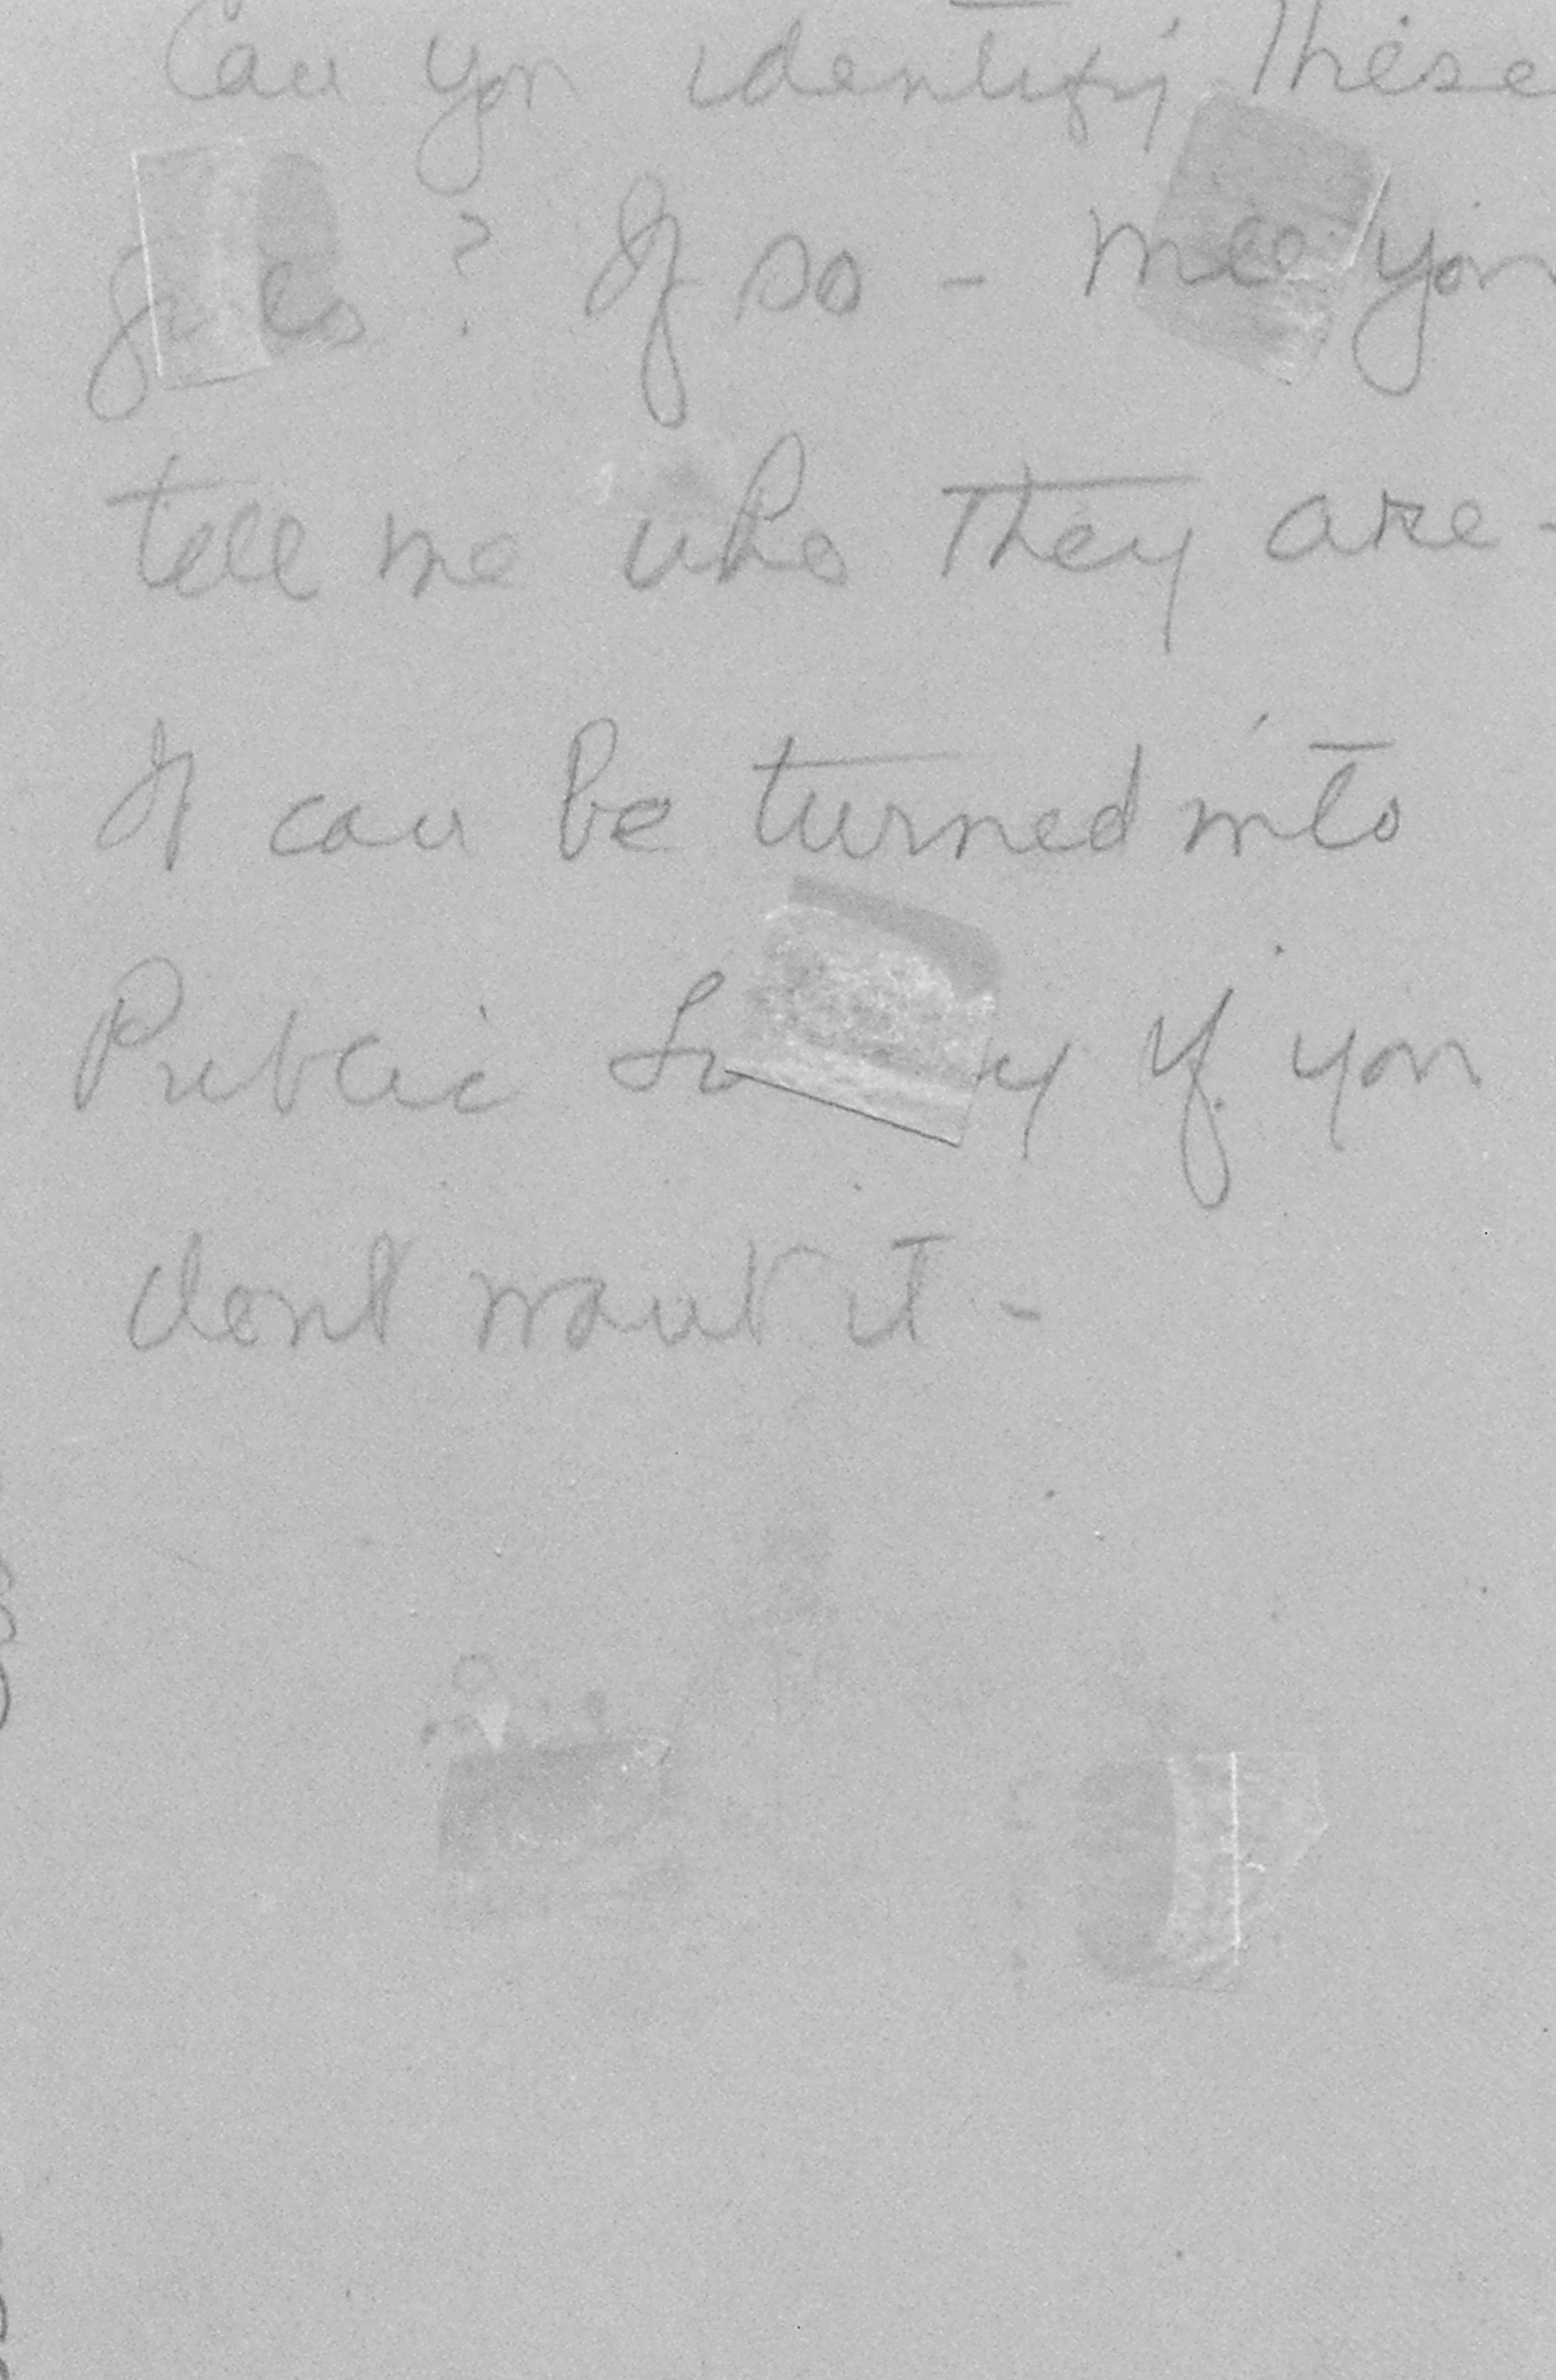 Can you identify These
? If so - will you
tell me who They are -
It can be turned into
Public if you
dont want it -